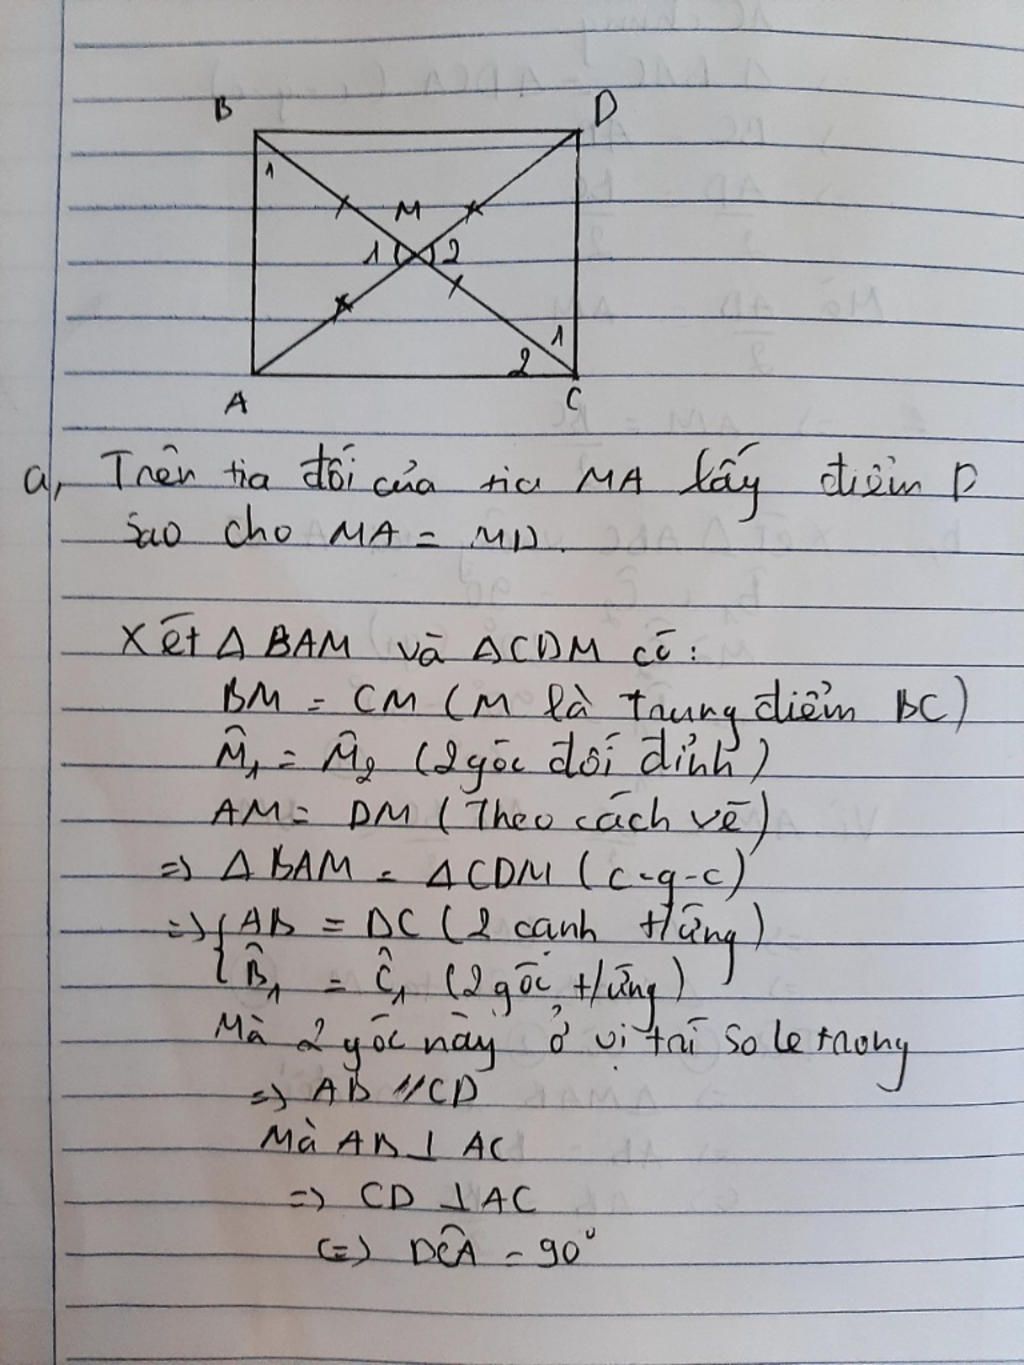 B
D
1
M
1
2
1
2
A
C
a, Trên tia đối của tia MA lấy điểm D
sao cho MA = MD.
Xét Δ BAM và ΔCDM có:
BM = CM (M là trung điểm BC)
M̂₁ = M̂₂ (2 góc đối đỉnh)
AM = DM (Theo cách vẽ)
=> Δ BAM = ΔCDM (c-g-c)
=> { AB = DC (2 cạnh t/ứng)
B̂₁ = Ĉ₁ (2 góc t/ứng)
Mà 2 góc này ở vị trí so le trong
=> AB // CD
Mà AB ⊥ AC
=> CD ⊥ AC
(=) DĈA = 90°